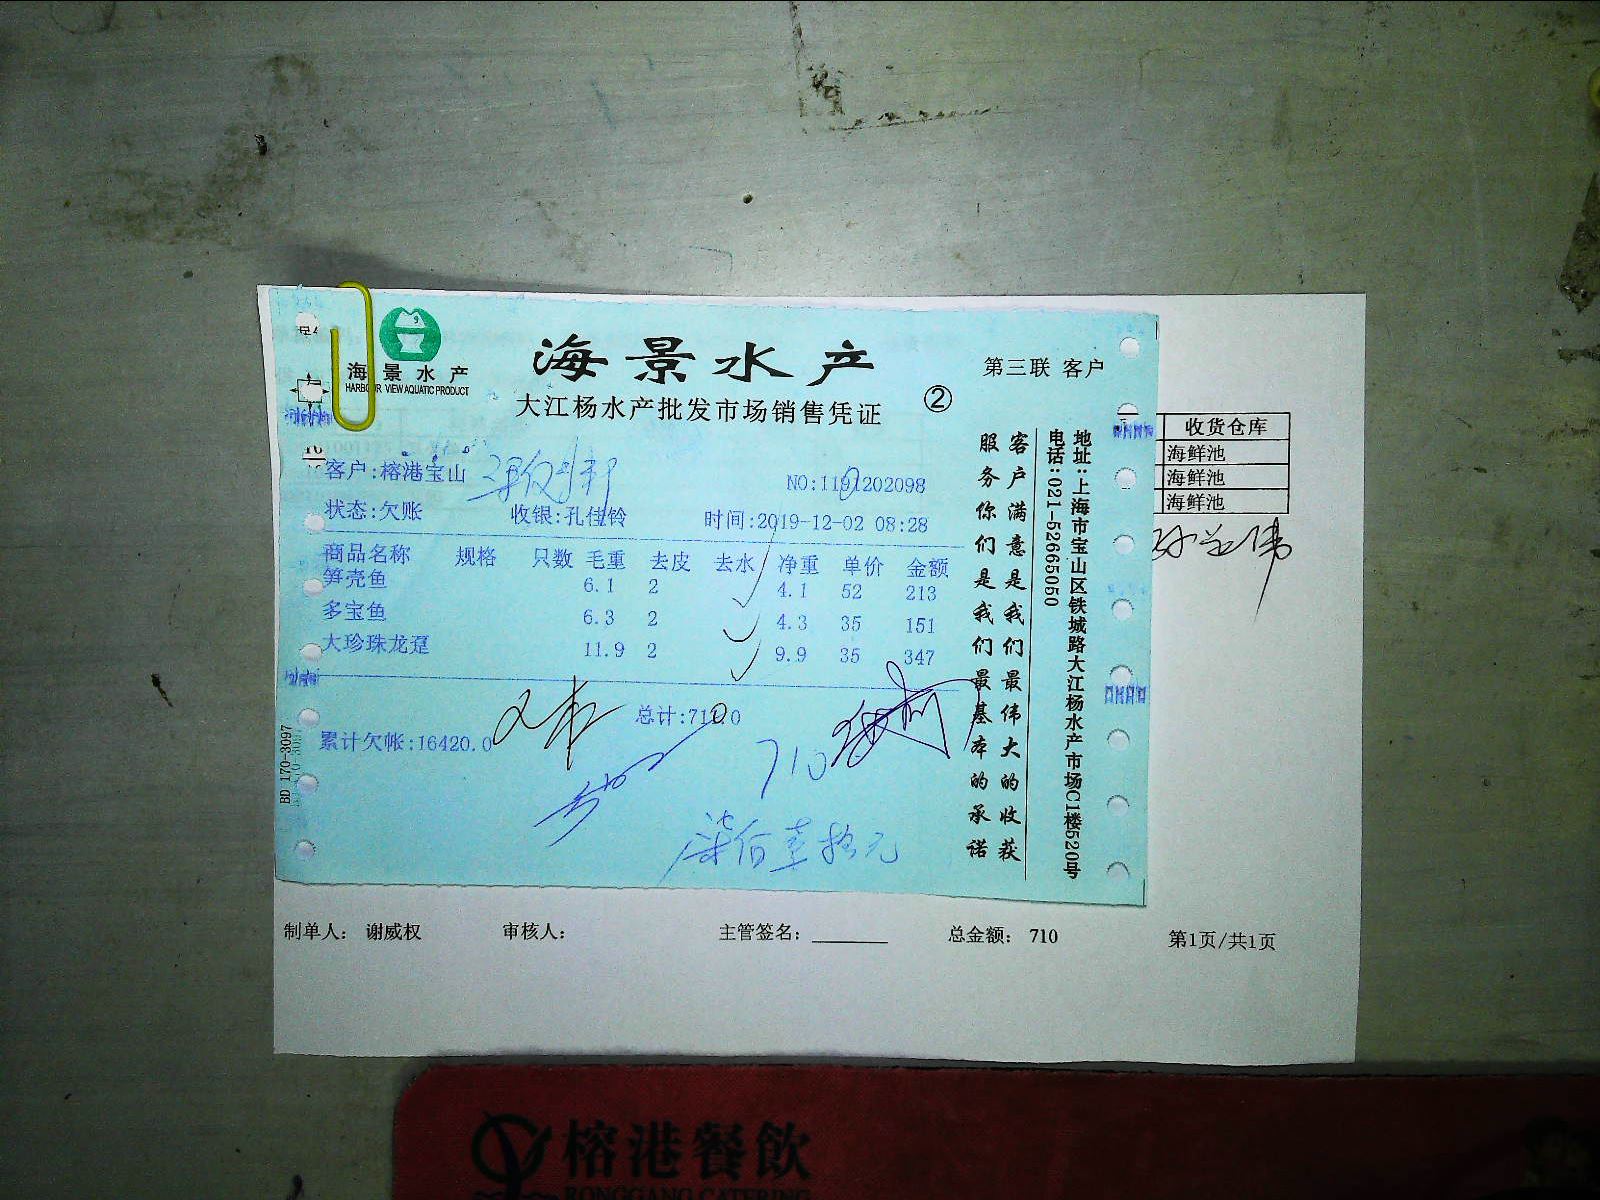 海景水产
HARBOUR VIEW AQUATIC PRODUCT
海景水产
大江杨水产批发市场销售凭证
②
第三联 客户
客户:榕港宝山
NO:1191202098
状态:欠账 收银:孔佳铃 时间:2019-12-02 08:28
商品名称 规格 只数 毛重 去皮 去水 净重 单价 金额
笋壳鱼 6.1 2 4.1 52 213
多宝鱼 6.3 2 4.3 35 151
大珍珠龙趸 11.9 2 9.9 35 347
总计:711.0
累计欠帐:16420.0
710
柒佰壹拾元
客户满意是我们最伟大的收获
服务你们是我们最基本的承诺
地址:上海市宝山区铁城路大江杨水产市场C1楼520号
电话:021-52665050
BD 170-3097
收货仓库
海鲜池
海鲜池
海鲜池
制单人: 谢威权 审核人: 主管签名: 总金额: 710 第1页/共1页
榕港餐飲
RONGGANG CATERING